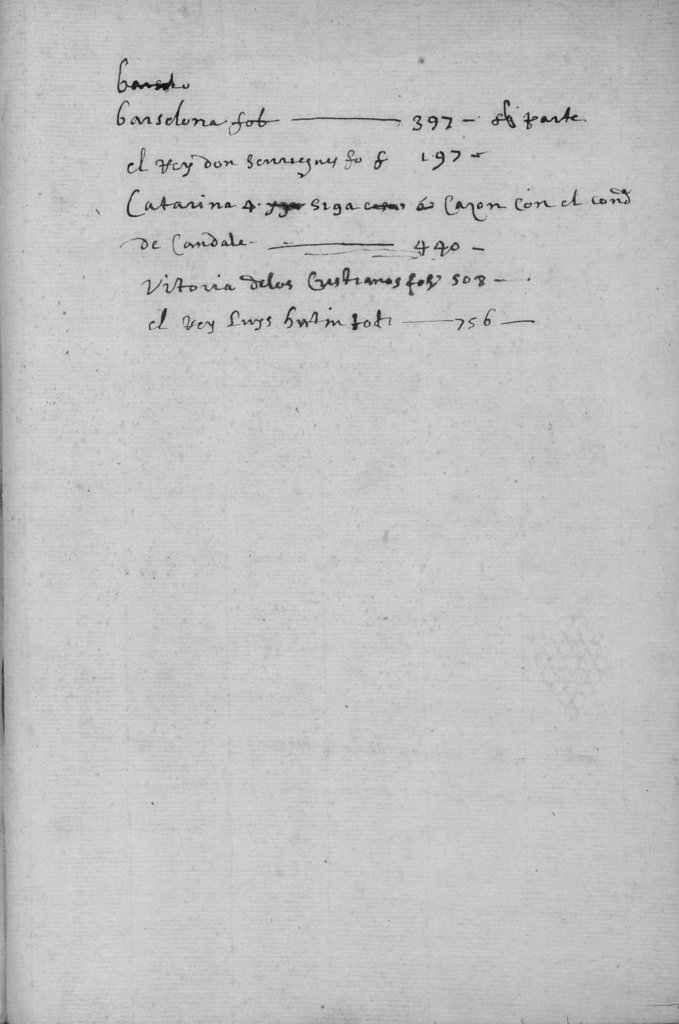 barselona fol 397 - parte
el Rey don henriques fo 197 -
Catarina 4. con el cond
de Candale 440 -
Vitoria delos Cristianos fol 508 -
el Rey Luys hutin fol 756